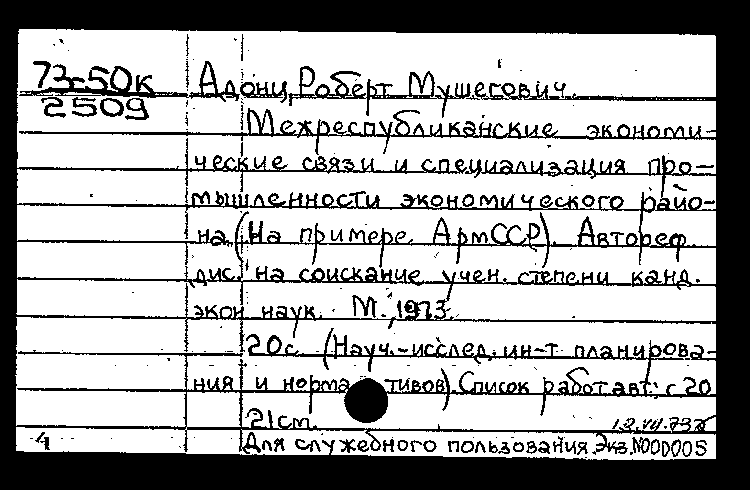 73-50к
2509
Адонц, Роберт Мушегович.
Межреспубликанские экономи-
ческие связи и специализация про-
мышленности экономического райо-
на. (На примере АрмССР). Автореф.
дис. на соискание учен. степени канд.
экон наук. М., 1973.
20с. (Науч.-исслед. ин-т планирова-
ния и нормативов). Список работ авт.: с 20
21см.
4
Для служебного пользования. Экз. N000005